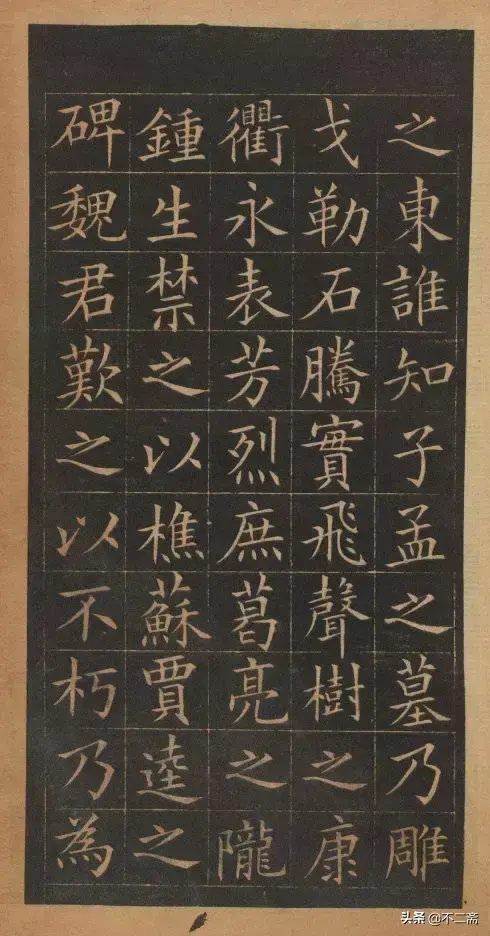 之東誰知子孟之墓乃雕
戈勒石騰實飛聲樹之康
衢永表芳烈庶葛亮之隴
鍾生禁之以樵蘇賈逵之
碑魏君歎之以不朽乃為
头条 @不二斋